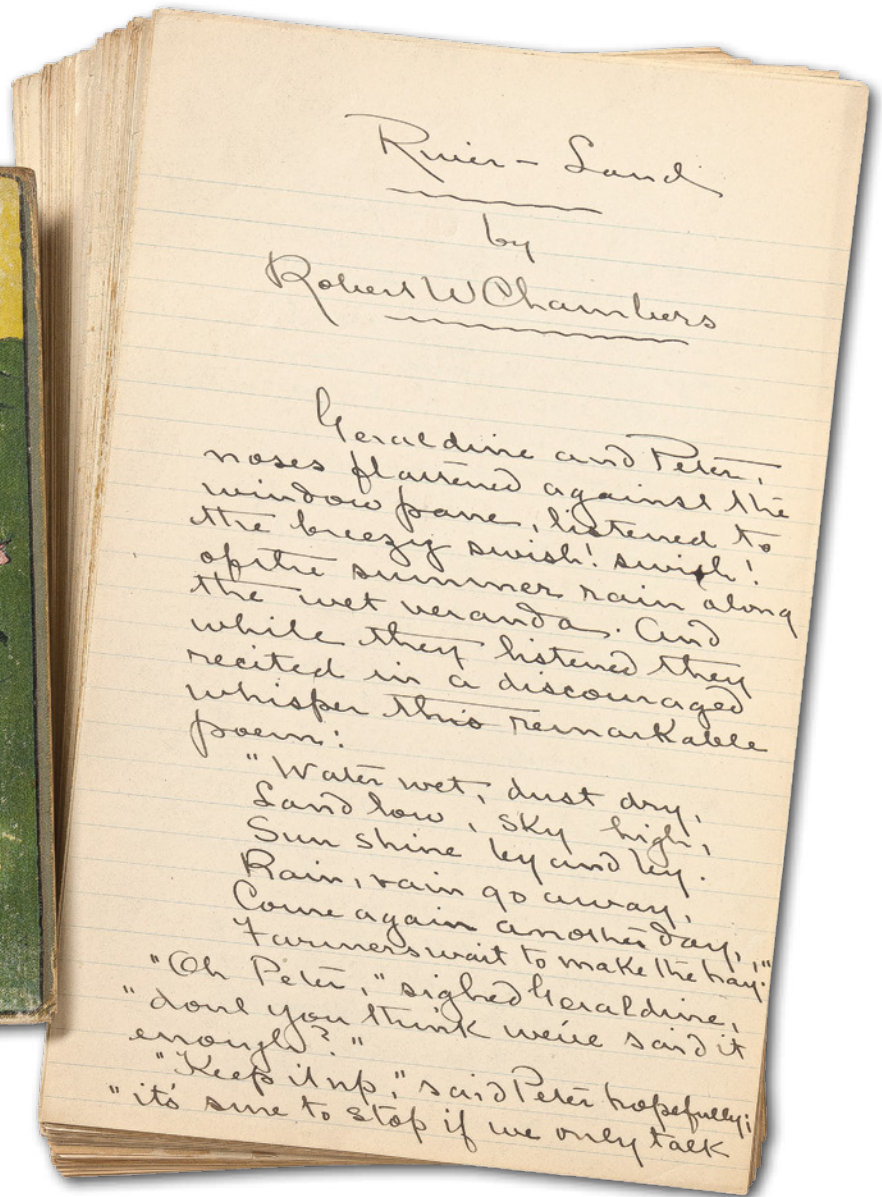 River-Land
by
Robert W Chambers
Geraldine and Peter,
noses flattened against the
window pane, listened to
the breezy swish! swish!
of the summer rain along
the wet veranda. And
while they listened they
recited in a discouraged
whisper this remarkable
poem:
"Water wet, dust dry,
Land low, sky high,
Sun shine by and by.
Rain, rain go away,
Come again another day,
Farmers wait to make the hay!"
"Oh Peter," sighed Geraldine,
"dont you think we've said it
enough?"
"Keep it up," said Peter hopefully;
"it's sure to stop if we only talk